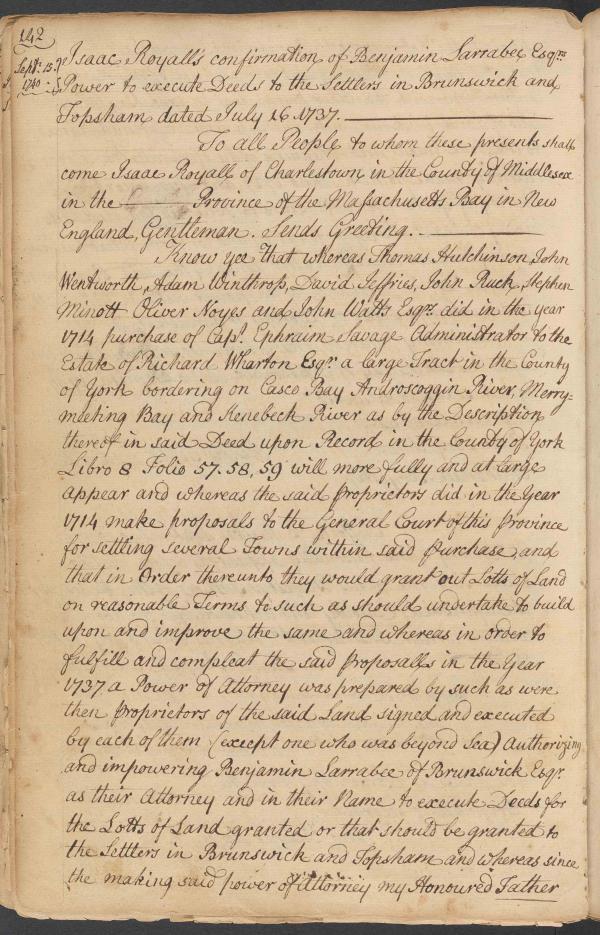 142
Sept. 15.
1740
Isaac Royall's confirmation of Benjamin Larrabee Esqrs
Power to execute Deeds to the Settlers in Brunswick and
Topsham dated July 16 1737.
To all People to whom these presents shall
come Isaac Royall of Charlestown in the County of Middlesex
in the Province of the Massachusetts Bay in New
England, Gentleman. Sends Greeting.
Know yee That whereas Thomas Hutchinson, John
Wentworth, Adam Winthrop, David Jeffries, John Ruck, Stephen
Minott Oliver Noyes and John Watts Esqrs did in the year
1714 purchase of Capt. Ephraim Savage Administrator to the
Estate of Richard Wharton Esqr a large Tract in the County
of York bordering on Casco Bay Androscoggin River, Merry=
meeting Bay and Kenebeck River as by the Description
thereof in said Deed upon Record in the County of York
Libro 8 Folio 57. 58, 59 will more fully and at large
appear and whereas the said Proprietors did in the Year
1714 make proposals to the General Court of this Province
for settling several Towns within said Purchase, and
that in Order thereunto they would grant out Lotts of Land
on reasonable Terms to such as should undertake to build
upon and improve the same and whereas in order to
fulfill and compleat the said Proposalls in the Year
1737 a Power of Attorney was prepared by such as were
then Proprietors of the said Land signed and executed
by each of them (except one who was beyond Sea) Authorizing
and impowering Benjamin Larrabee of Brunswick Esqr
as their Attorney and in their Name to execute Deeds for
the Lotts of Land granted or that should be granted to
the Settlers in Brunswick and Topsham and whereas since
the making said power of Attorney my Honoured Father